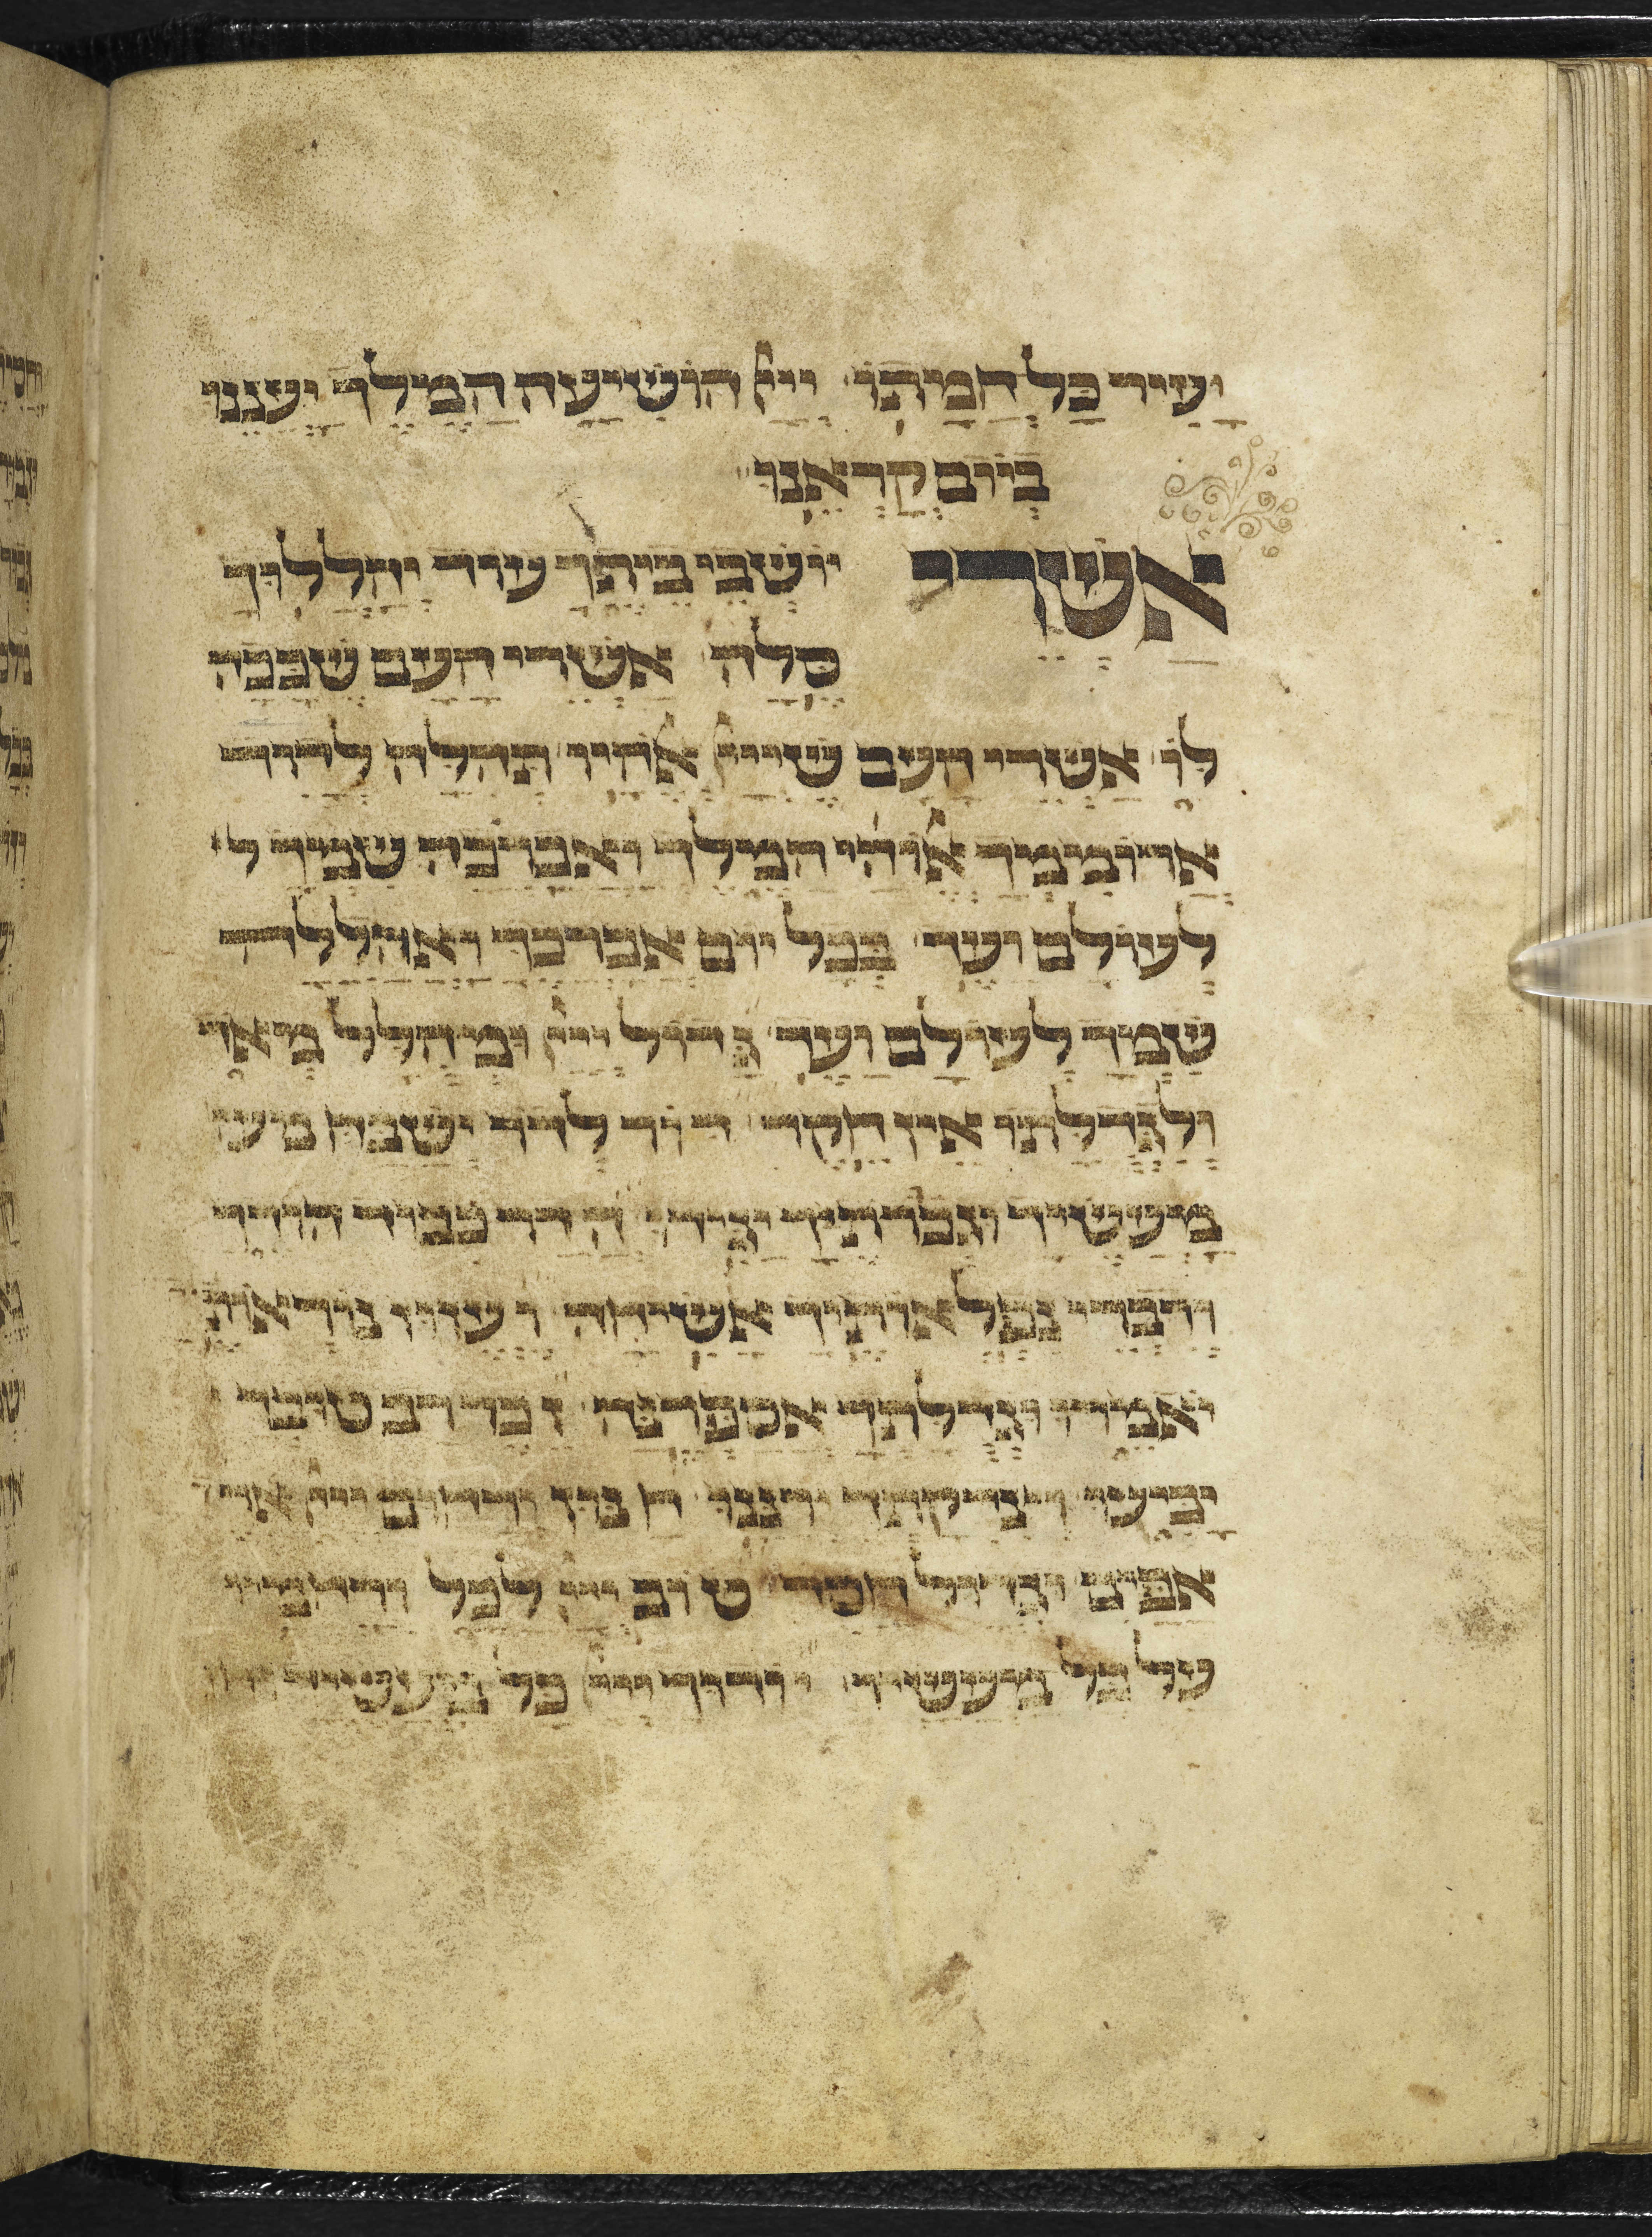 ועיר כל חמתו ייי הושיעה המלך יעננו
ביום קראנו
אשרי יושבי ביתך עוד יהללוך
סלה אשרי העם שככה
לו אשרי העם שייי אלהיו תהלה לדוד
ארוממך אלוהי המלך ואברכה שמך ל
לעולם ועד בכל יום אברכך ואהללה
שמך לעולם ועד גדול ייי ומהולל מאד
ולגדולתו אין חקר דור לדור ישבח מעש
מעשיך וגבורתיך יגידו הדר כבוד הודך
ודברי נפלאותיך אשיחה ועזוז נוראות
יאמרו וגדולתך אספרנה זכר רב טובך
יביעו וצדקתך ירננו חנון ורחום ייי ארך
אפים וגדול חסד טוב ייי לכל ורחמיו
על כל מעשיו יודוך ייי כל מעשיך